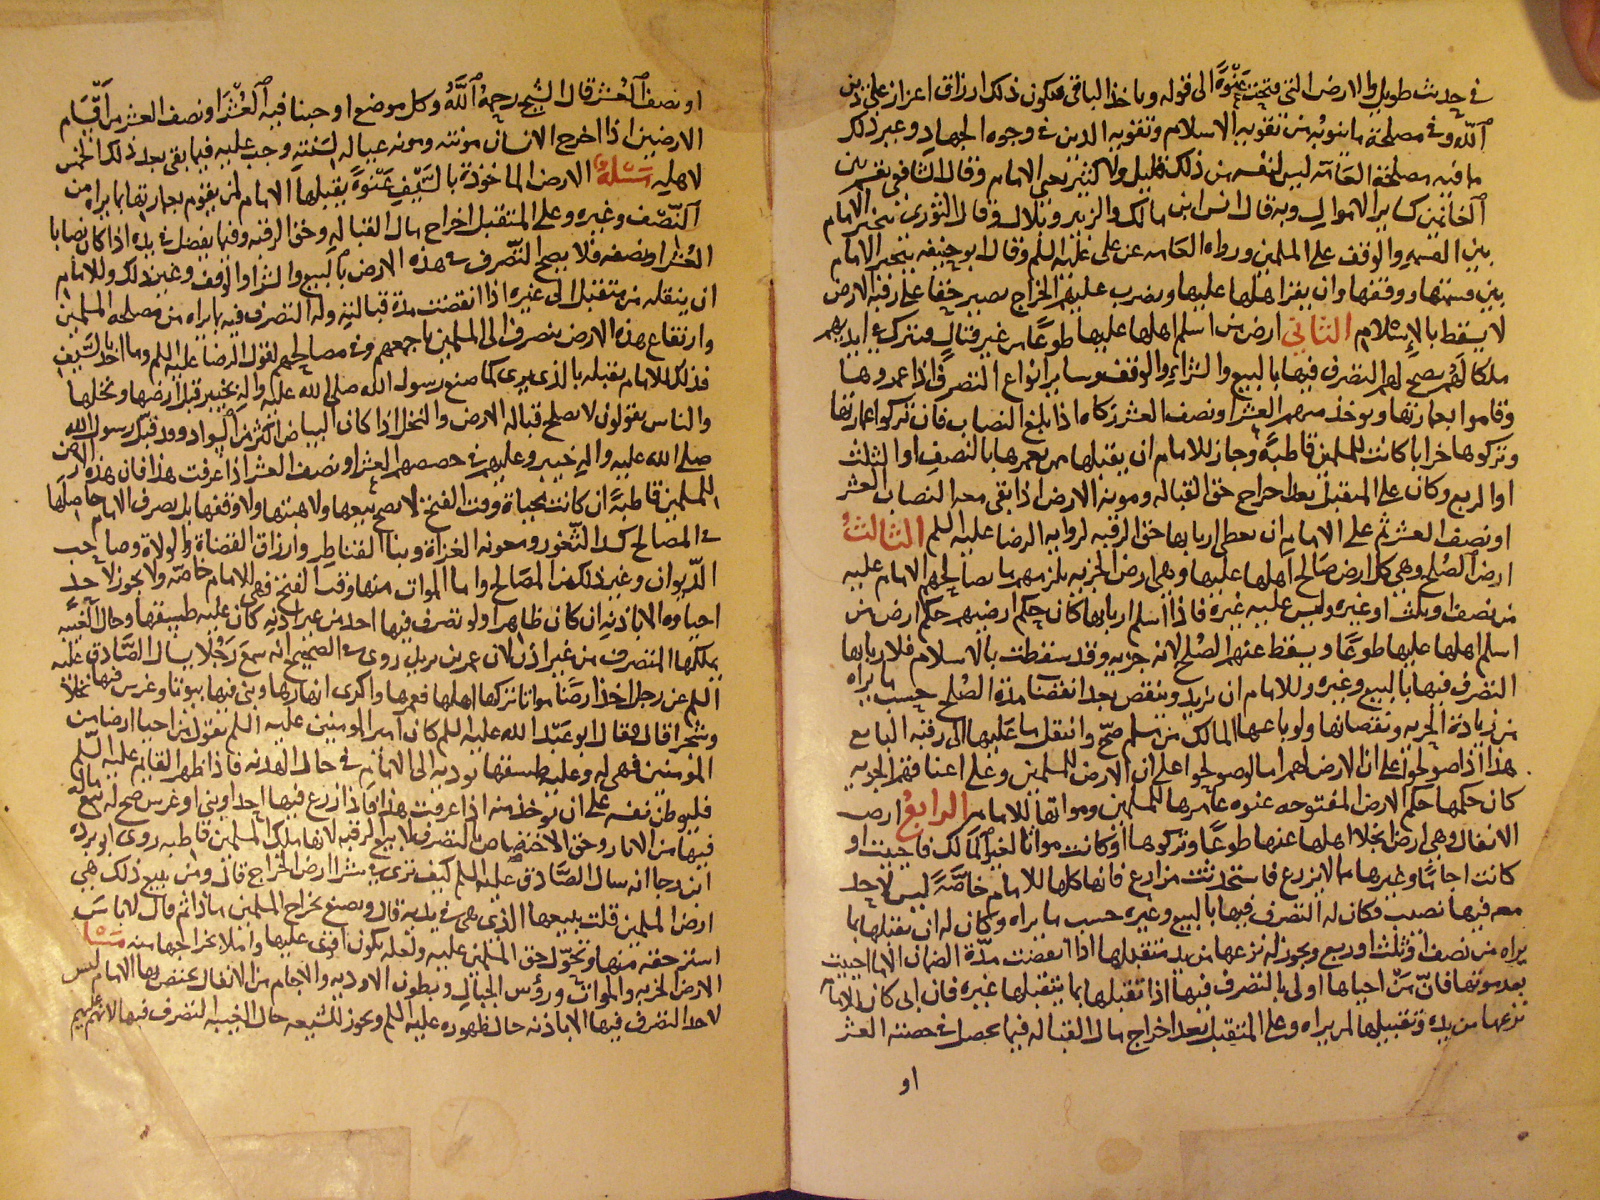 في حديث طويل والارض التي فتحت عنوة الى قوله وياخذ الباقي فيكون ذلك ارزاق اعوانه على دين
الله وفي مصلحة ما ينوبه من تقوية الاسلام وتقوية الدين في وجوه الجهاد وغير ذلك
ما فيه مصلحة العامة ليس لنفسه من ذلك قليل ولا كثير نحى الامام وقال الشافعي تقسم بين
الغانمين كساير الاموال وبه قال انس ابن مالك والزبير وبلال وقال الثوري يتخير الامام
بين القسمة والوقف على المسلمين ورواه العامه عن علي عليه السلم وقال ابو حنيفه يتخير الامام
بين قسمتها ووقفها وان يقر اهلها عليها ويضرب عليهم الخراج يصير حقا على رقبة الارض
لا يسقط بالاسلام الثاني ارض من اسلم اهلها عليها طوعا من غير قتال فتترك في ايديهم
ملكا لهم يصح لهم التصرف فيها بالبيع والشراء والوقف وساير انواع التصرف اذا عمروها
وقاموا بعمارتها ويوخذ منهم العشر او نصف العشر زكاه اذا بلغ النصاب فان تركوا عمارتها
وتركوها خرابا كانت للمسلمين قاطبة وجاز للامام ان يقبلها ممن يعمرها بالنصف او الثلث
او الربع وكان على المتقبل بعد اخراج حق القباله ومونة الارض اذا بقى معه النصاب العشر
او نصف العشر ثم على الامام ان يعطى اربابها حق الرقبه لروايه الرضا عليه السلم الثالث
ارض الصلح وهي كل ارض صالح اهلها عليها وهي ارض الجزيه يلزمهم ما يصالحهم الامام عليه
من نصف او ثلث او غيره وليس عليه غيره فاذا اسلم اربابها كان حكم ارضيهم حكم ارض من
اسلم اهلها عليها طوعا ويسقط عنهم الصلح لانه جزيه وقد سقطت بالاسلام فلاربابها
التصرف فيها بالبيع وغيره وللامام ان يزيد وينقص بعد انقضا مدة الصلح حسب ما يراه
من زيادة الجزيه ونقصانها ولو باعها المالك من مسلم صح وانتقل ما عليها الى رقبة البايع
هذا اذا صولحوا على ان الارض لهم اما لو صولحوا على ان الارض للمسلمين وعلى اعناقهم الجزيه
كان حكمها حكم الارض المفتوحه عنوه عامرها للمسلمين ومواتها للامام الرابع ارض
الانفال وهي ارض انجلا اهلها عنها طوعا وتركوها او كانت مواتا لغير مالك فاحييت او
كانت اجاما وغيرها مما لا يزرع فاستحدثت مزارع فانها كلها للامام خاصة ليس لاحد
معه فيها نصيب فكان له التصرف فيها بالبيع وغيره حسب ما يراه وكان له ان يقبلها بما
يراه من نصف او ثلث او ربع ويجوز له نزعها من يد متقبلها اذا انقضت مدة الضمان الا ما احييت
بعد موتها فان من احياها اولى بالتصرف فيها اذا تقبلها بما يتقبلها غيره فان ابى كان للامام
نزعها من يده وتقبيلها لمن يراه وعلى المتقبل بعد اخراج مال القباله فيما يحصل في حصته العشر
او
او نصف العشر قال الشيخ رحمه الله وكل موضع اوجبنا فيه العشر او نصف العشر من اقسام
الارضين اذا اخرج الانسان مونته ومونه عياله لسنته وجب عليه فيما بقى بعد ذلك الخمس
لاهله مسئلة الارض الماخوذة بالسيف عنوة يقبلها الامام لمن يقوم بعمارتها بما يراه من
النصف وغيره وعلى المتقبل اخراج مال القباله وحق الرقبه وفيما يفضل في يده اذا كان نصابا
العشر او نصفه فلا يصح التصرف في هذه الارض بالبيع والشرا والوقف وغير ذلك وللامام
ان ينقله من متقبل الى غيره اذا انقضت مدة قبالته وله التصرف فيه بما يراه من مصلحه المسلمين
وارتفاع هذه الارض ينصرف الى المسلمين باجمعهم وفي مصالحهم لقول الرضا عليه السلم وما اخذ بالسيف
فذلك للامام يقبله بالذي يرى كما صنع رسول الله صلى الله عليه واله بخيبر قبل ارضها ونخلها
والناس يقولون لا يصلح قباله الارض والنخل اذا كان البياض اكثر من السواد وقد قبل رسول الله
صلى الله عليه واله خيبر وعليهم في حصصهم العشر او نصف العشر اذا عرفت هذا فان هذه الارض
للمسلمين قاطبة ان كانت محياة وقت الفتح لا يصح بيعها ولا هبتها ولا وقفها بل يصرف الامام حاصلها
في المصالح كسد الثغور ومعونه الغزاة وبنا القناطر وارزاق القضاة والولاة وصاحب
الديوان وغير ذلك من المصالح واما الموات منها وقت الفتح فهي للامام خاصه ولا يجوز لاحد
احياوه الا باذنه ان كان ظاهرا ولو تصرف فيها احد من غير اذنه كان عليه طسقها وحال الغيبه
يملكها المتصرف من غير اذن لان عمر بن يزيد روى في الصحيح انه سمع رجلا يسال الصادق عليه
السلم عن رجل اخذ ارضا مواتا تركها اهلها فعمرها واكرى انهارها وبنى فيها بيوتا وغرس فيها نخلا
وشجرا قال فقال ابو عبد الله عليه السلم كان امير المومنين عليه السلم يقول من احيا ارضا من
المومنين فهي له وعليه طسقها يوديه الى الامام في حال الهدنه فاذا ظهر القايم عليه السلم
فليوطن نفسه على ان يوخذ منه اذا عرفت هذا فاذا زرع فيها احد او بنى او غرس صح له بيع ماله
فيها من الاثار وحق الاختصاص بالتصرف لا بيع الرقبه لانها ملك المسلمين قاطبه روى ابو برده
ابن رجا انه سال الصادق عليه السلم كيف ترى في شرا ارض الخراج قال ومن يبيع ذلك هي
ارض المسلمين قلت يبيعها الذي هي في يده قال ويصنع بخراج المسلمين ماذا ثم قال لا باس
اشتر حقه منها وتحول حق المسلمين عليه ولعله يكون اقوى عليها واملا بخراجها منه مسئلة
الارض الخربه والموات ورؤس الجبال وبطون الاوديه والاجام من الانفال يختص بها الامام ليس
لاحد التصرف فيها الا باذنه حال ظهوره عليه السلم ويجوز للشيعه حال الغيبه التصرف فيها لانهم عليهم